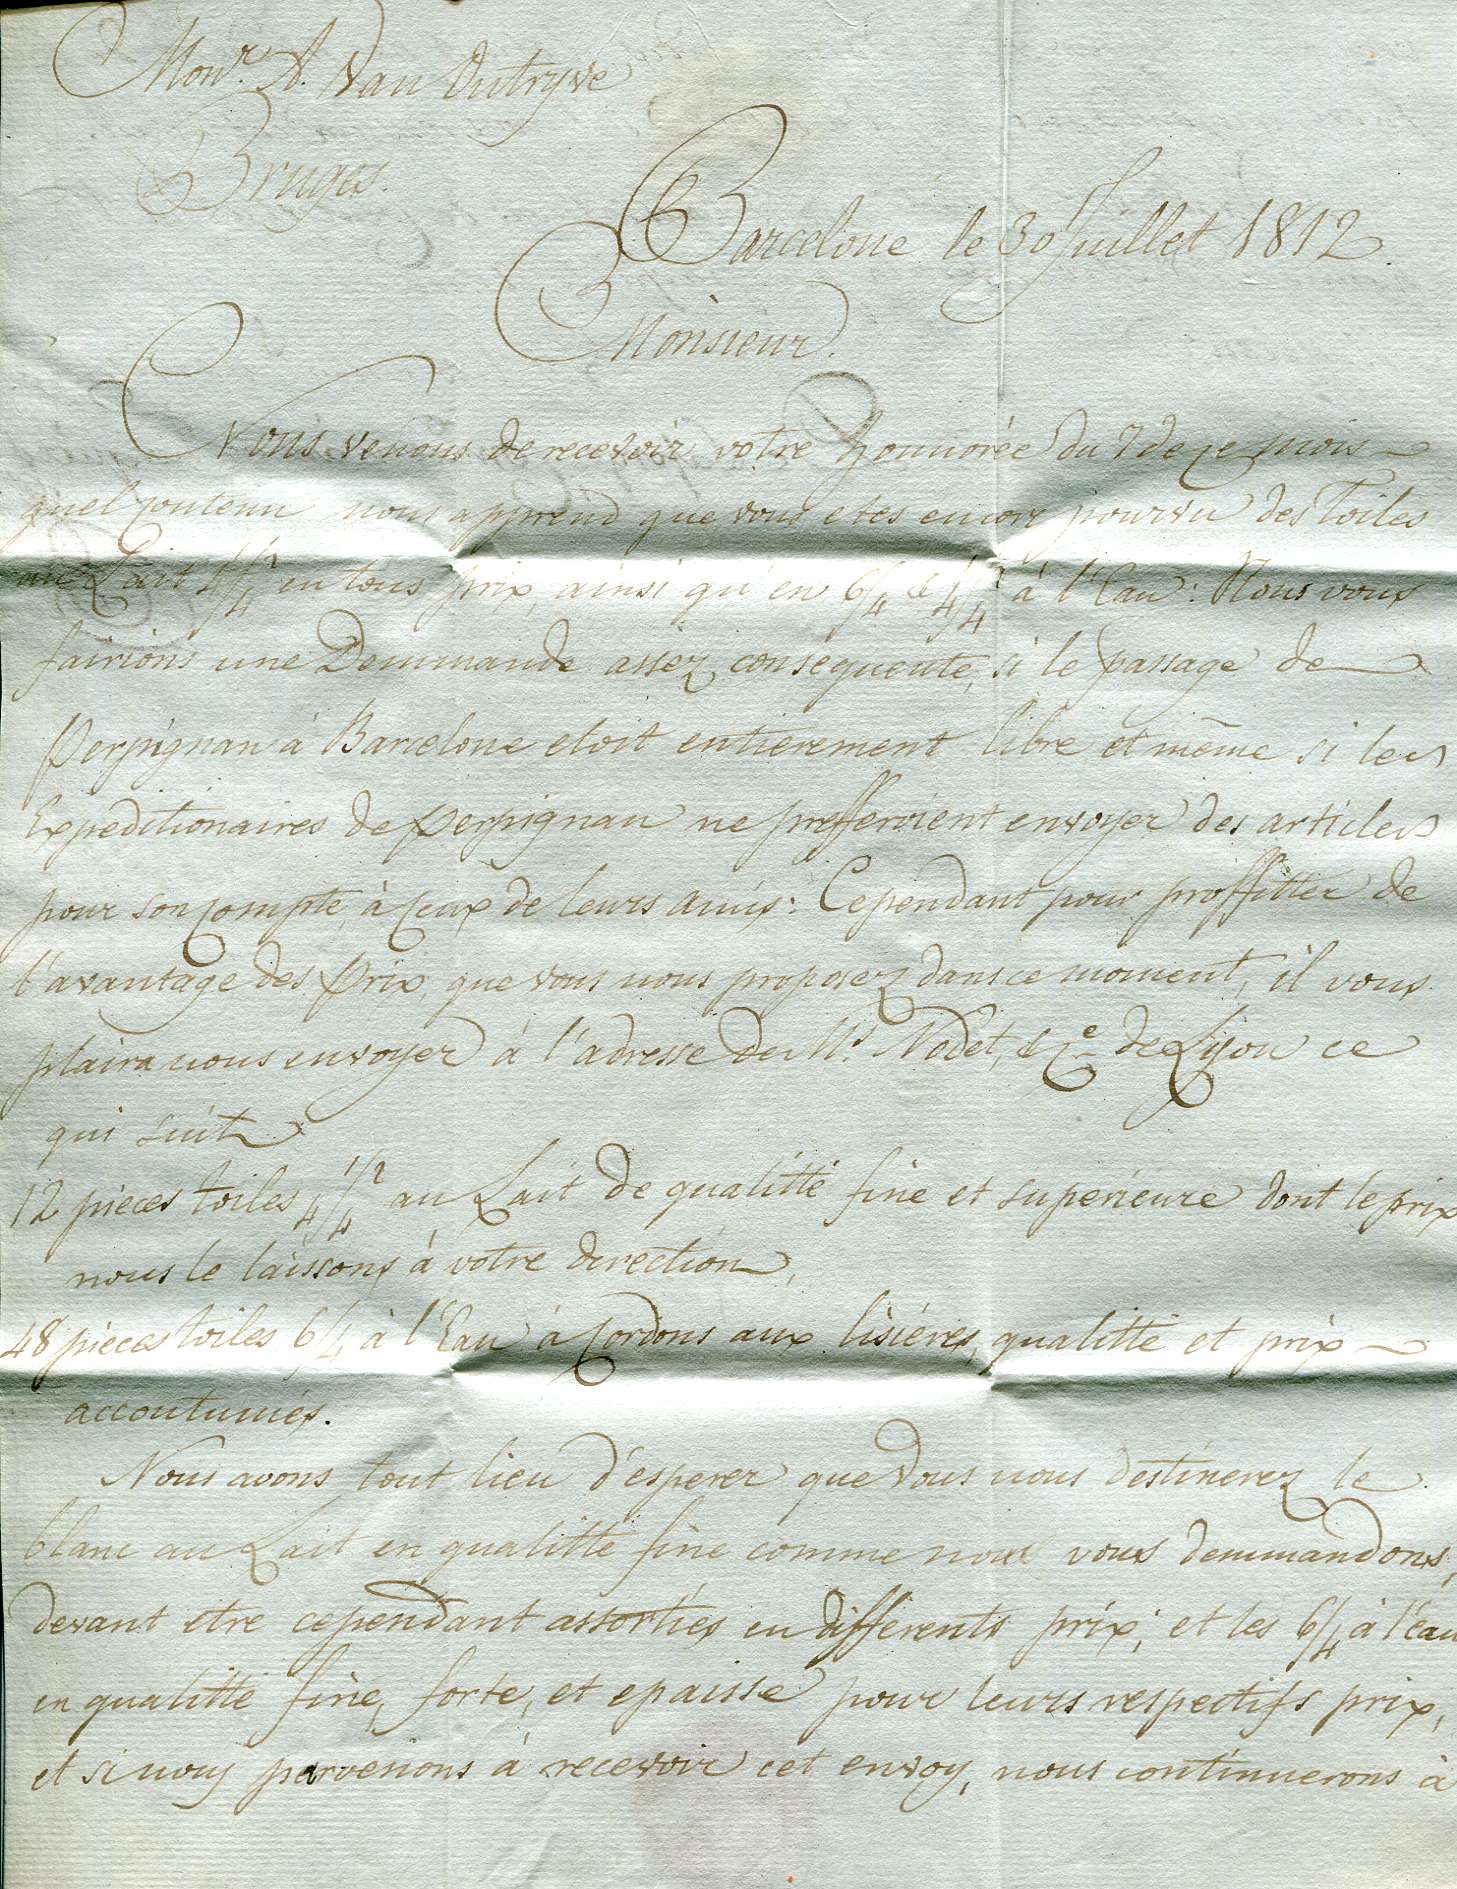 Monr. A. Van Outryve
Bruges.
Barcelone le 30 Juillet 1812.
Monsieur.
Nous venons de recevoir votre honnorée du 7 de ce mois
quel contenu nous apprend que vous etes encore pourvu des Toiles
au Lait 4/4 1/2 en tous prix, ainsi qu'en 6/4 & 4/4 à l'Eau: Nous vous
fairions une Demmande assez consequente, si le passage de
Perpignan à Barcelone etoit entierement libre et même si les
Expeditionaires de Perpignan ne prefferoient envoyer des articles
pour son compte, à ceux de leurs amis: Cependant pour proffitter de
l'avantage des Prix, que vous nous proposez dans ce moment, il vous
plaira nous envoyer à l'adresse de Ms. Nodet, & Ce. de Lyon ce
qui suit
12 pieces toiles 4/4 1/2 au Lait de qualitté fine et superieure dont le prix
nous le laissons à votre direction,
48 pieces toiles 6/4 à l'Eau à Cordons aux lisiéres, qualitté et prix
accoutumés.
Nous avons tout lieu d'esperer que vous nous destinerez le
blanc au Lait en qualitté fine comme nous vous demmandons,
devant etre cependant assorties en differents prix; et les 6/4 à l'Eau
en qualitté fine, forte, et epaisse pour leurs respectifs prix,
et si nous parvenons à recevoir cet envoy, nous continuerons à